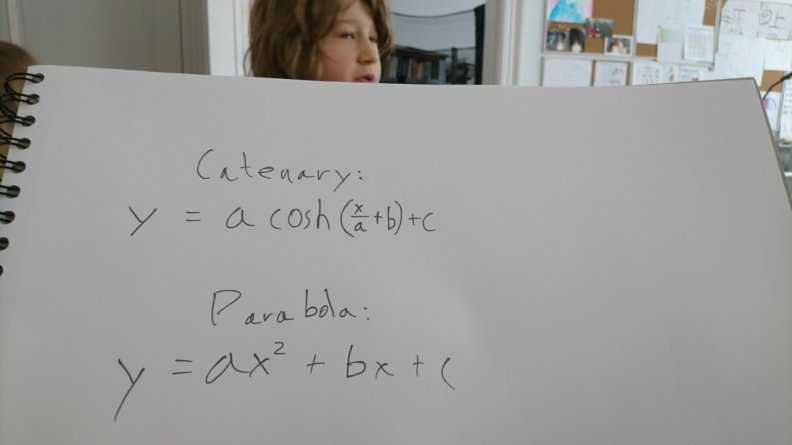 Catenary:
y = a cosh (x/a + b) + c
Parabola:
y = ax² + bx + c